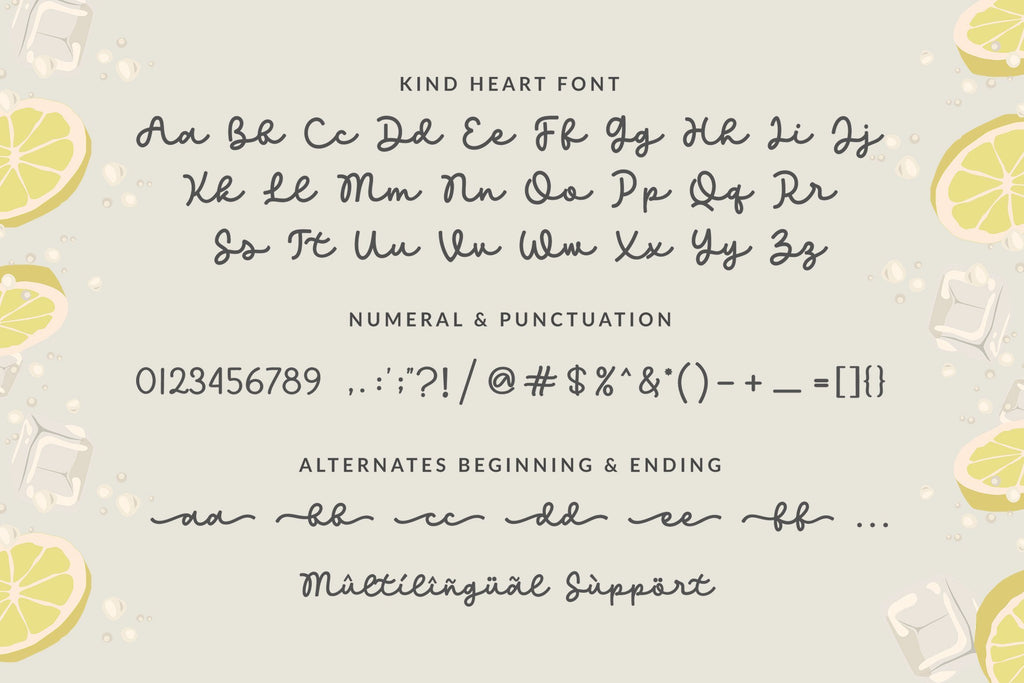 KIND HEART FONT
Aa Bb Cc Dd Ee Ff Gg Hh Ii Jj
Kk Ll Mm Nn Oo Pp Qq Rr
Ss Tt Uu Vv Ww Xx Yy Zz
NUMERAL & PUNCTUATION
0123456789 ,.:';"?!/@#$%^&*()-+_=[]{}
ALTERNATES BEGINNING & ENDING
aa bb cc dd ee ff ...
Mûltílîñgüãl Sùppört